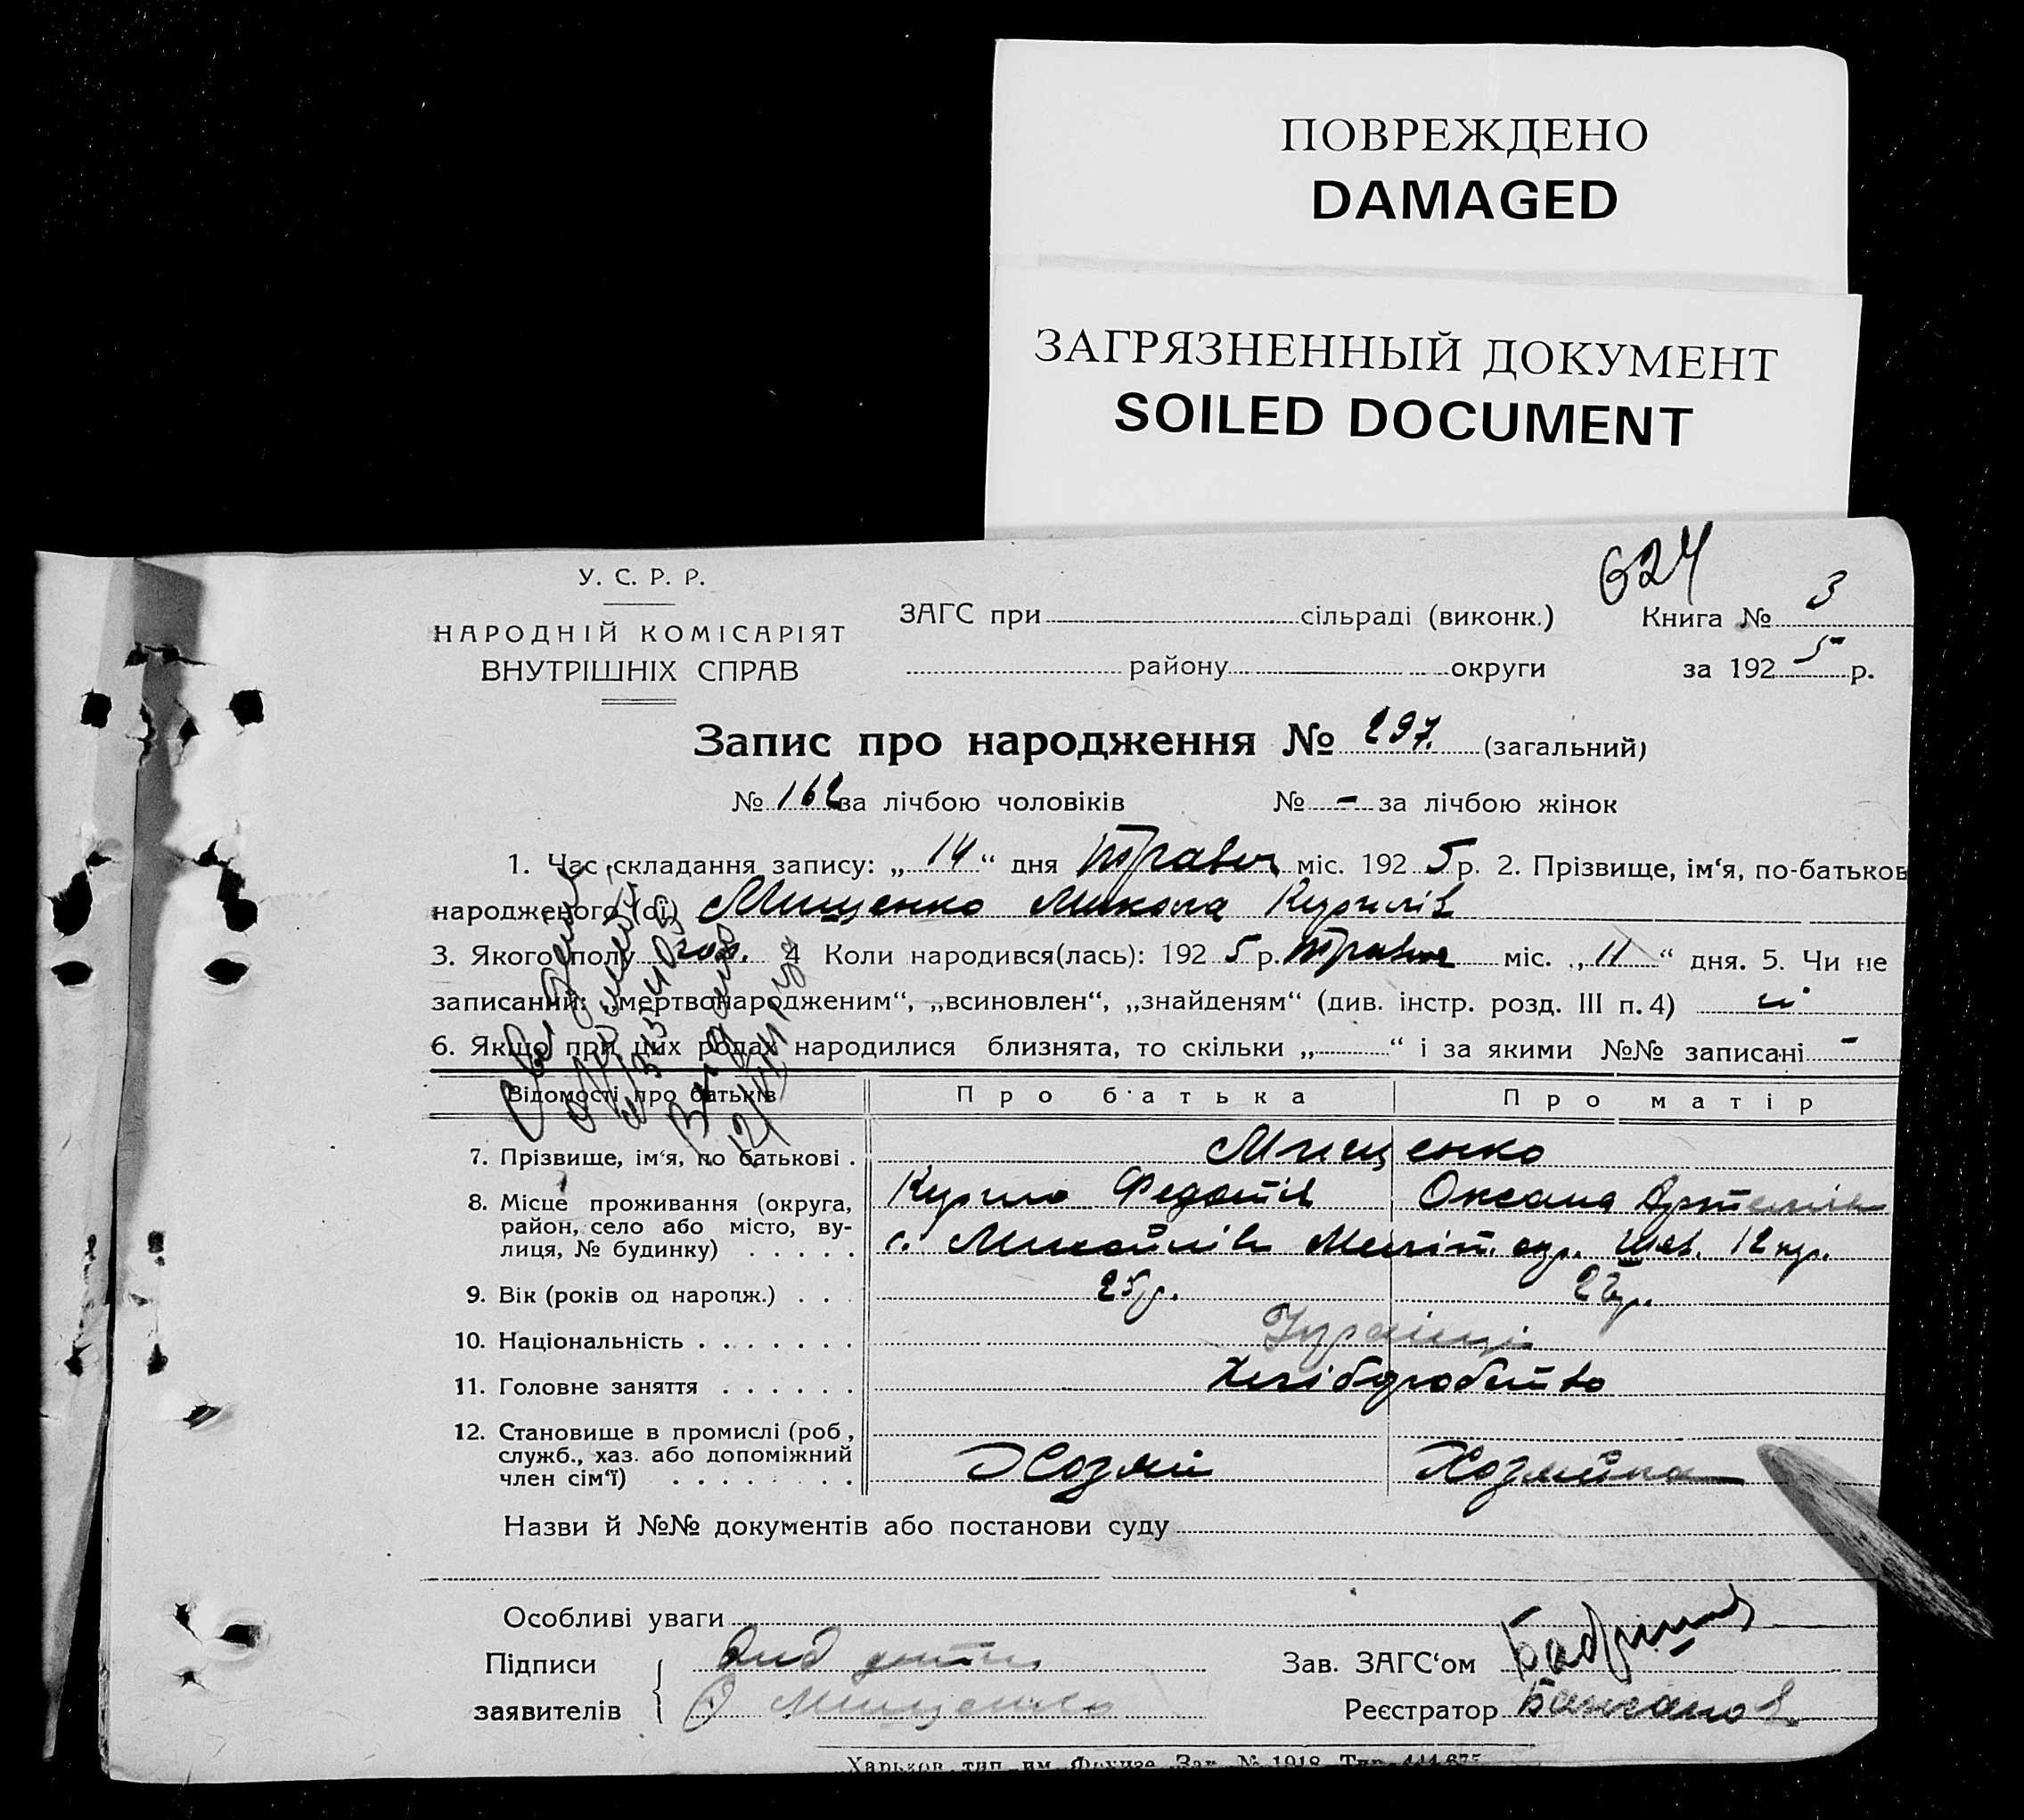 ПОВРЕЖДЕНО
DAMAGED
ЗАГРЯЗНЕННЫЙ ДОКУМЕНТ
SOILED DOCUMENT
624
У. С. Р. Р.
НАРОДНІЙ КОМІСАРІЯТ
ВНУТРІШНІХ СПРАВ
ЗАГС при сільраді (виконк.) Книга № 3
району округи за 192 5 р.
Запис про народження № 297. (загальний)
№ 162 за лічбою чоловіків № - за лічбою жінок
1. Час складання запису: „ 14 “ дня травня міс. 192 5 р. 2. Прізвище, ім‘я, по-батьков
народженого (ої) Мищенко Микола Курилів
3. Якого полу чол. 4 Коли народився(лась): 192 5 р. травня міс. „ 11 “ дня. 5. Чи не
записаний: „мертвонародженим“, „всиновлен“, „знайденям“ (див. інстр. розд. III п. 4) ні
6. Якщо при цих родах народилися близнята, то скільки „ “ і за якими №№ записані -
Відомості про батьків Про батька Про матір
7. Прізвище, ім‘я, по батькові . Мищенко
Курило Федотів Оксана Артемів
8. Місце проживання (округа,
район, село або місто, ву-
лиця, № будинку) . . . . . с. Михайлів Меліт. окр. 12
9. Вік (років од нарощж.) . . 25р. 22р.
10. Національність . . . . . . . Українці
11. Головне заняття . . . . . . Хліборобство
12. Становище в промислі (роб ,
служб., хаз. або допоміжний
член сім‘ї) . . . . . . . Хозяїн Хозяйка
Назви й №№ документів або постанови суду
Особливі уваги
Підписи
заявителів О Мищенко
Зав. ЗАГС‘ом
Реєстратор
Харьков, тип. им. Фрунзе. Зак. № 1918